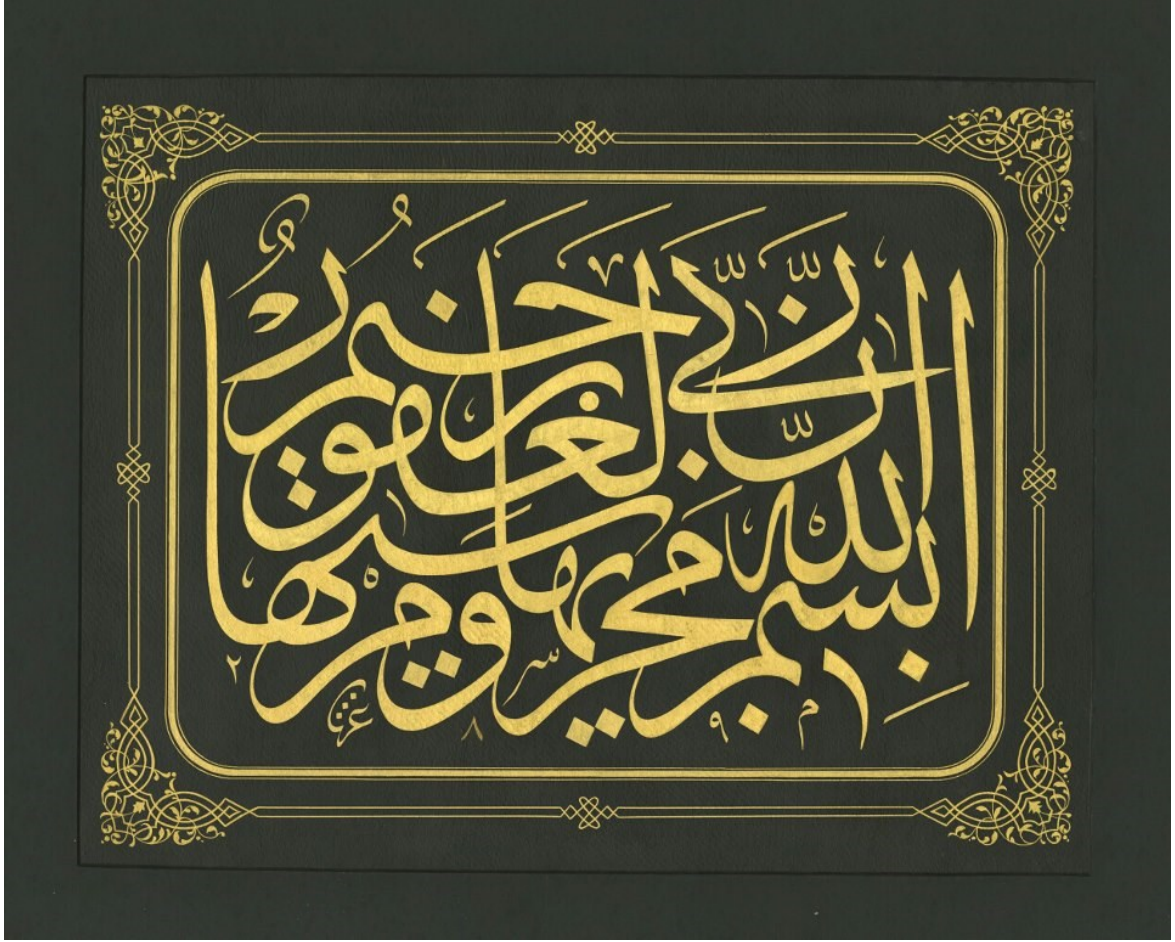 بِسْمِ اللّٰهِ مَجْرٰيهَا وَمُرْسٰيهَا
اِنَّ رَبّٖي لَغَفُورٌ رَحٖيمٌ